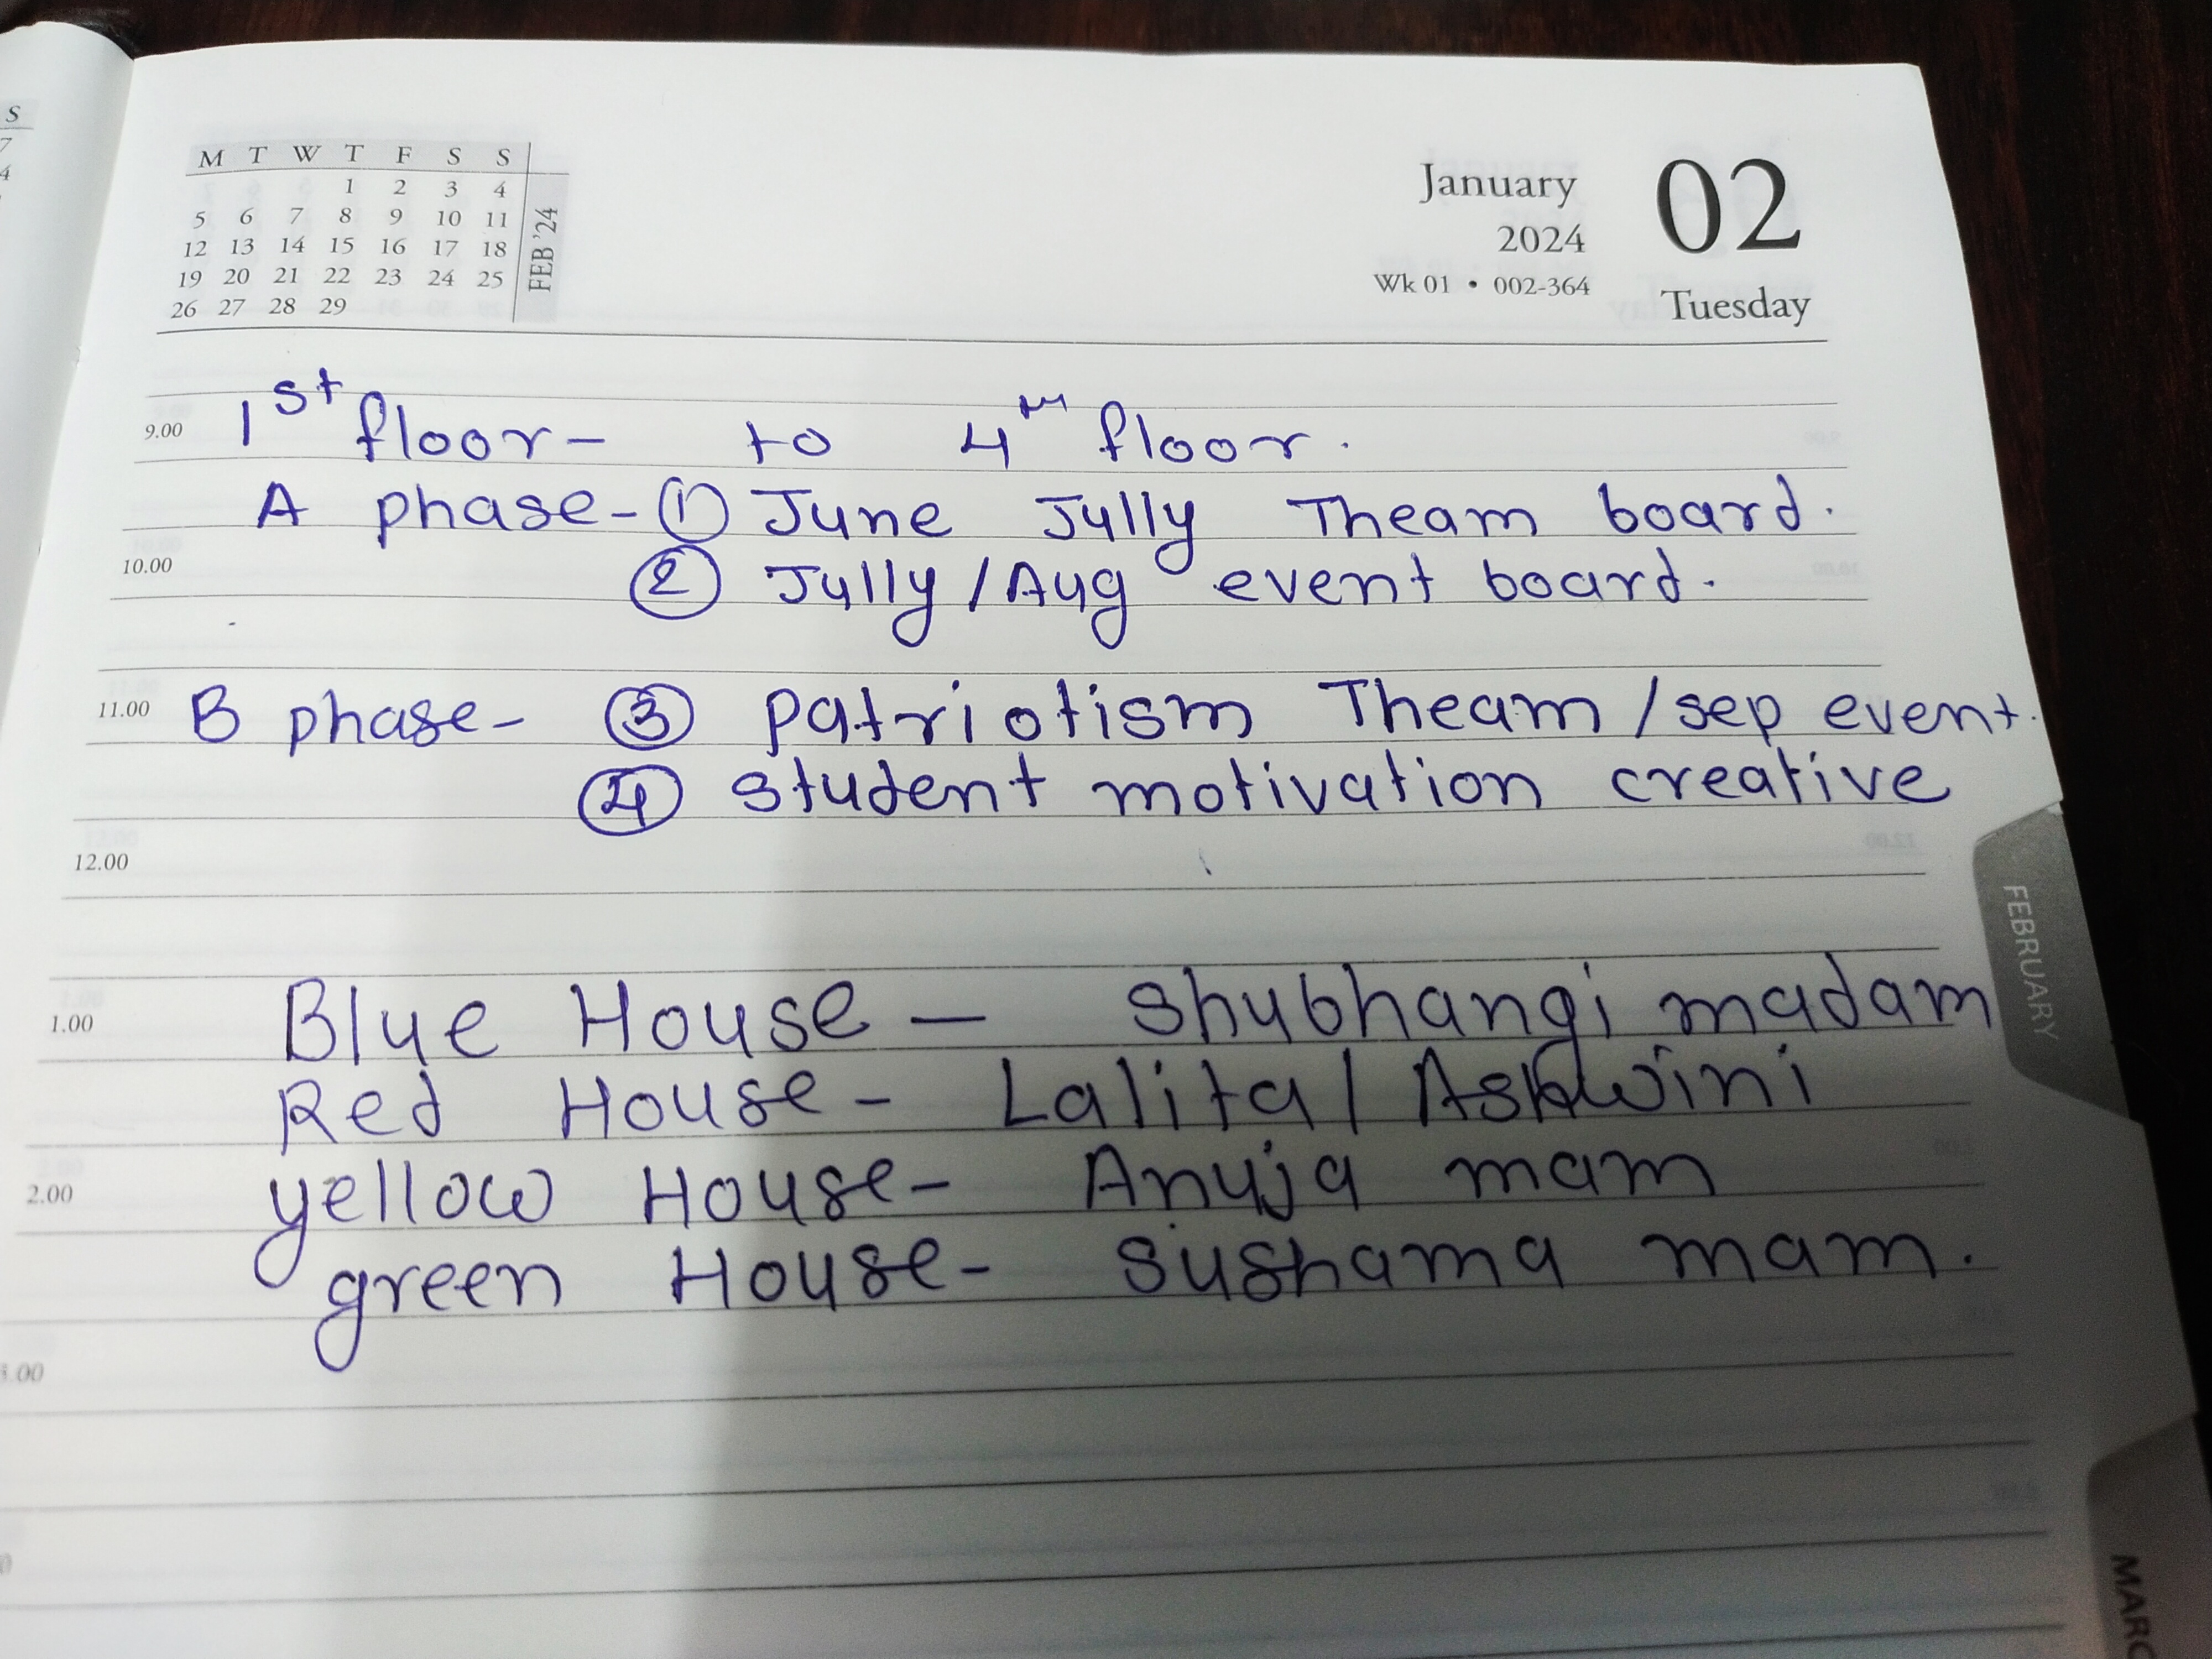 S
7
4
M T W T F S S
1 2 3 4
5 6 7 8 9 10 11
12 13 14 15 16 17 18
19 20 21 22 23 24 25
26 27 28 29
FEB '24
January
2024
Wk 01 • 002-364
02
Tuesday
9.00 1st floor- to 4th floor.
A phase- ① June Jully Theam board.
10.00 ② Jully/Aug event board.
11.00 B phase- ③ patriotism Theam/sep event.
④ student motivation creative
12.00
FEBRUARY
1.00 Blue House - Shubhangi madam
Red House- Lalita/Ashwini
2.00 yellow House- Anuja mam
green House- Sushama mam.
3.00
MARC